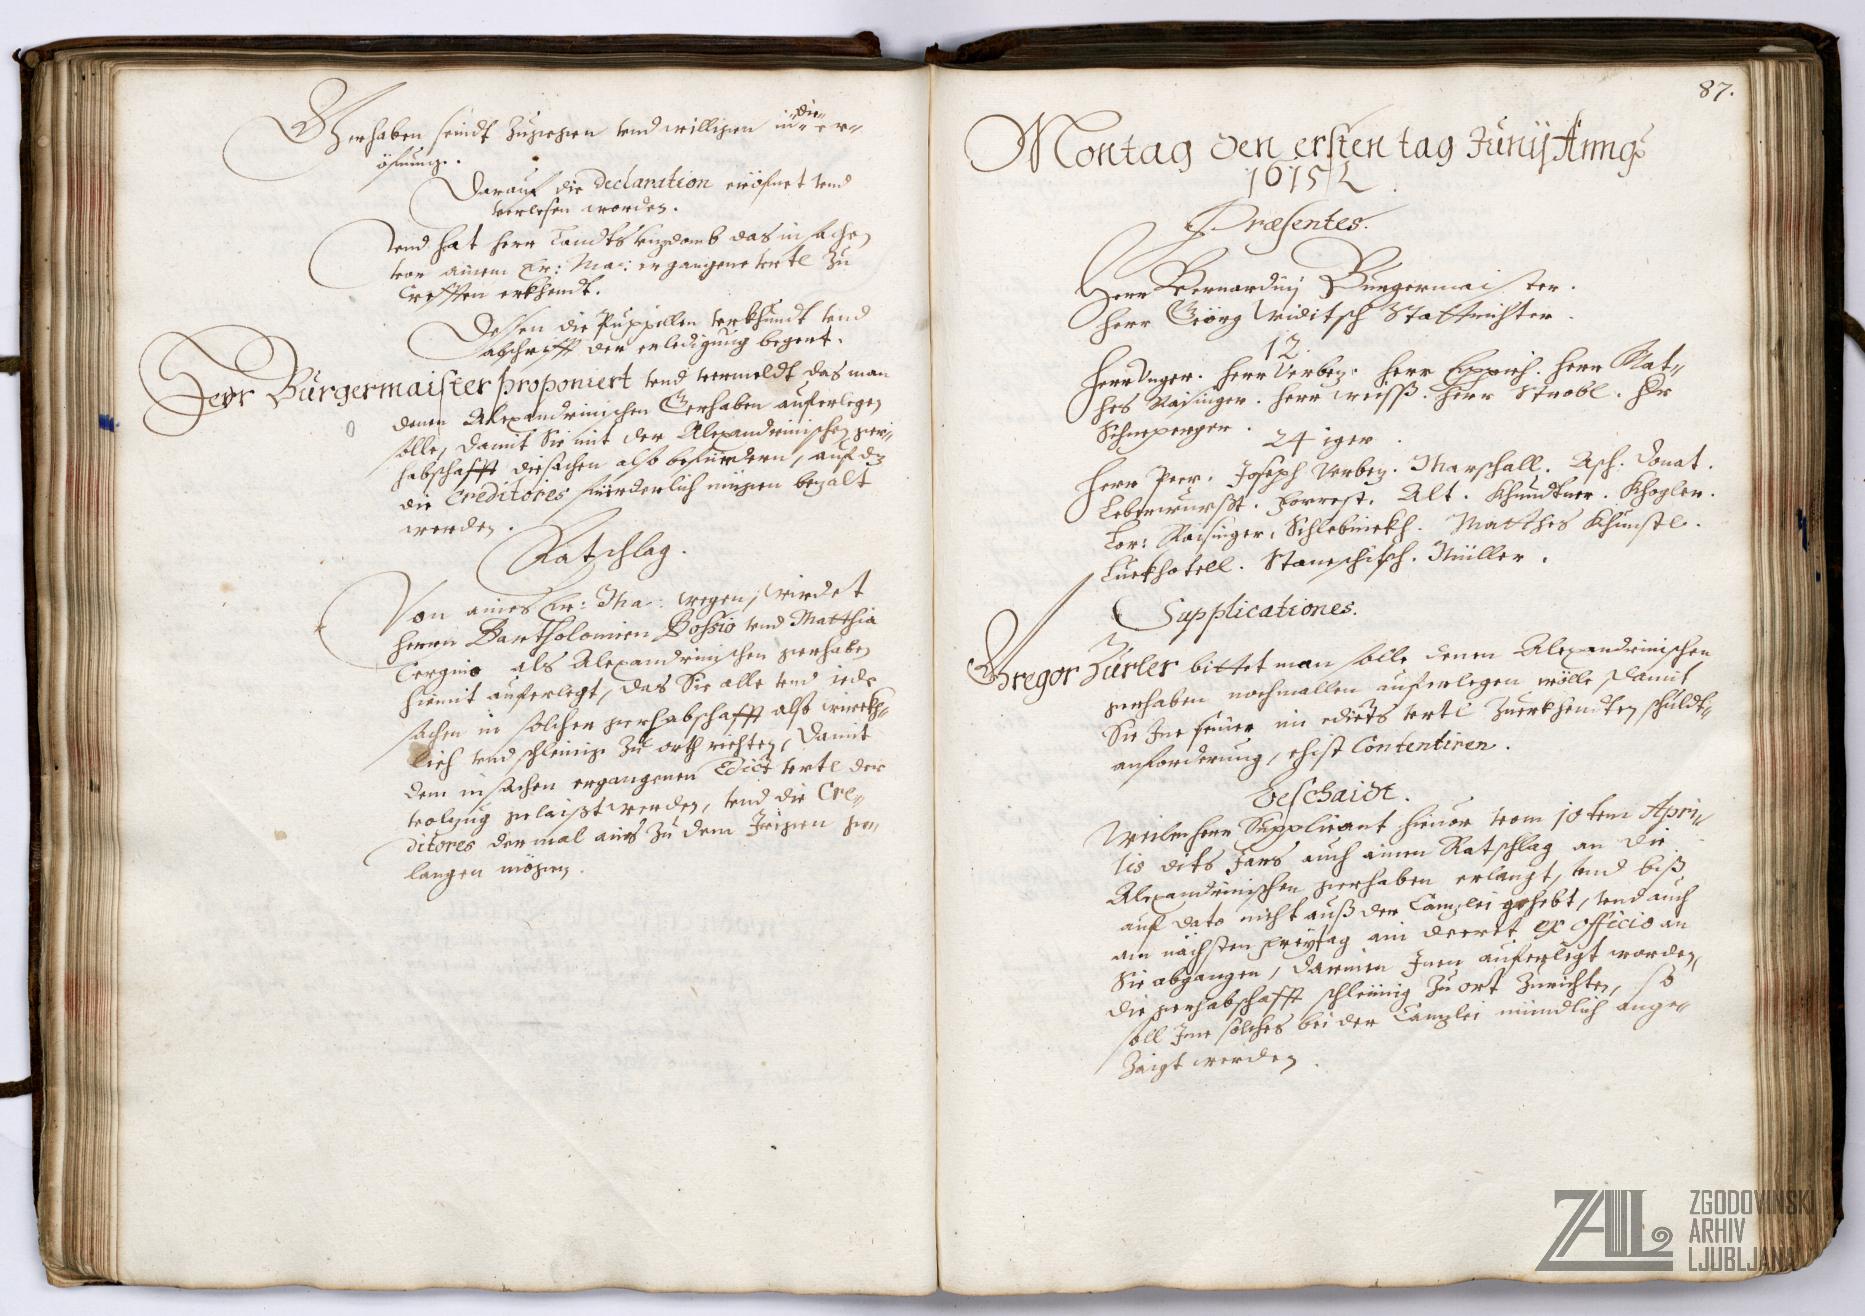 Gerhaben seindt zugegen vnd willigen in die er-
öfnung.
Darauf die Declaration eröfnet vnd
verlesen worden.
Vnd hat herr Landts das in sachen
vor ainem Er: Ma: ergangene vrtl zu
Treffen erkhendt.
Dessen die Puppillen verkhündt vnd
abschrifft der erledigung begert.
Herr Burgermaister proponiert vnd vermeldt das man
denen Alexandrinischen Gerhaben auferlegen
solle, damit Sie mit der Alexandrinischen ger-
habschafft die sachen also befürdern, auf das
die Creditores fürderlich mügen bezalt
werden.
Ratschlag.
Von aines Er: Ma: wegen, wirdet
herrn Bartholomeen Bossio vnd Matthia
Cergnio als Alexandrinischen gerhaben
hiemit auferlegt, das Sie alle vnd iede
sachen in solcher gerhabschafft also würckh-
lich vnd schleinig zu orth richten, damit
dem in sachen ergangenen Edict vrtl der
volzug gelaist werden, vnd die Cre-
ditores der mal ains zu dem Irigen ge-
langen mögen.
87.
Montag den ersten tag Junÿ Anno
1615
Præsentes.
Herr Bernardinj Burgermaister.
Herr Georg Viditsch Stattrichter.
12.
Herr Vnger. herr Verbez. herr Eppich. herr Mat-
thes Raisinger. herr Weiss. herr Strobl. Hr
Schneperger.
24 iger.
Herr Peer. Joseph Verbez. Marschall. Asch. Donat.
Leberwurst. Forrest. Alt. Khundtner. Khogler.
Lor: Raisinger. Schlebnickh. Matthes Khunstl.
Luckhatell. Stamschitsch. Müller.
Supplicationes.
Gregor Zürler bittet man solle denen Alexandrinischen
gerhaben nochmallen auferlegen wölle damit
Sie Ine seiner im edicts vrtl zuerkhendten schuldt-
anforderung, ehist Contentiren.
Beschaidt.
Weilen herr Supplicant hieuor vom 10ten Apri-
lis dits Jars auch ainen Ratschlag an die
Alexandrinischen gerhaben erlangt, vnd biß
auf dato nicht auß der Canzlei gehebt, vnd auch
am nächsten freytag ain decret ex officio an
Sie abgangen, darinen Inen auferlegt worden,
die gerhabschafft schleinig zu ort zurichten, so
soll Ine solches bei der Canzlei mündlich ange-
zaigt werden.
ZAL
ZGODOVINSKI
ARHIV
LJUBLJANA